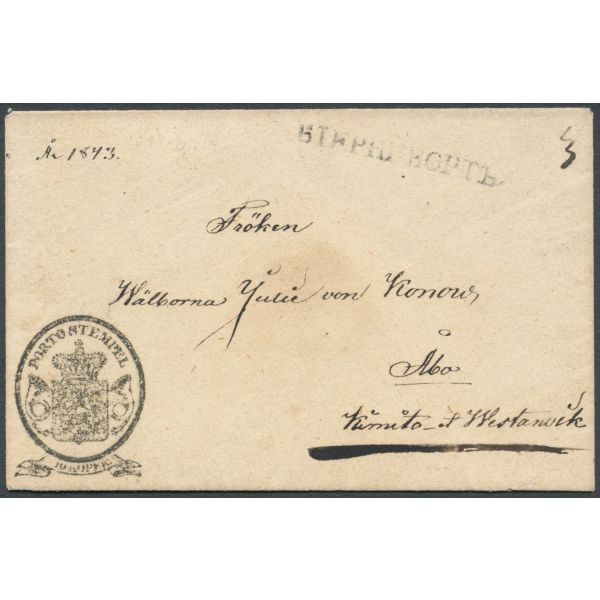 År 1843.
БІЕРНЕБОРГЪ
Fröken
Wälborna Julie von Konow,
Åbo
Kimito et Westanvik
PORTO STEMPEL
10 KOPEK.